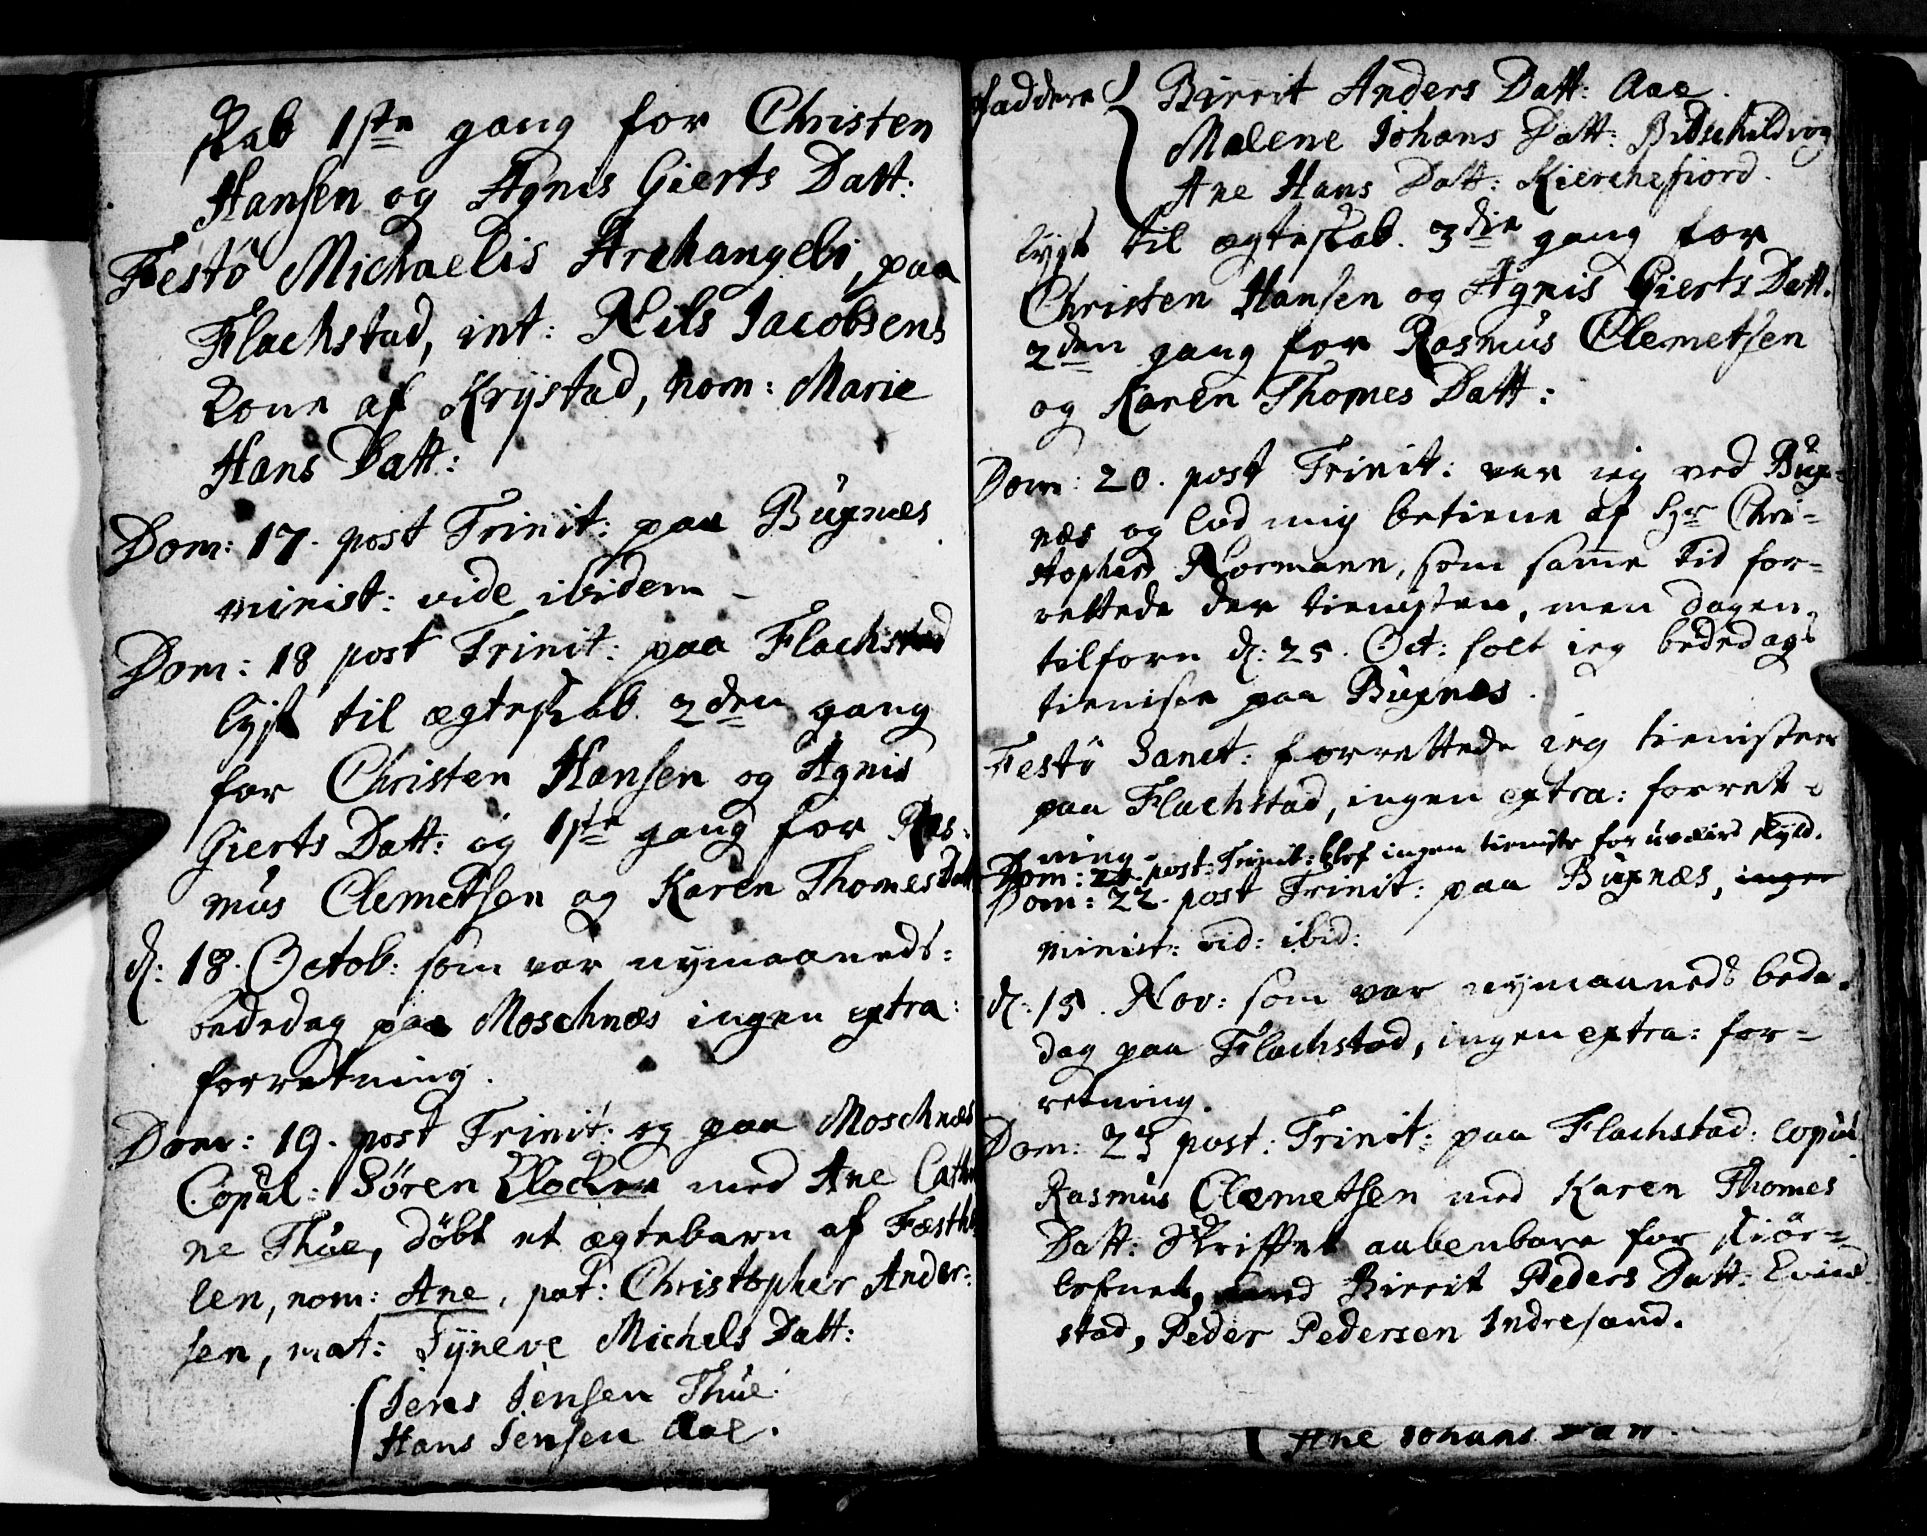 skab 1ste gang for Christen
Hansen og Agnis Gierts Datt:
Festö Michaelis Archangeli, paa
Flachstad, int: Nils Jacobsens
Kone af Krystad, nom: Marie
Hans Datt:
Dom: 17. post Trinit: paa Buxnæs
minist: vide ibidem
Dom: 18 post Trinit: paa Flachstad
lyst til ægteskab 2den gang
for Christen Hansen og Agnis
Gierts Datt: og 1ste gang for Ras=
mus Clemetsen og Karen Thomes Datt
d: 18. Octob: som var nymaaneds=
bededag paa Moschnæs ingen extra:
forretning.
Dom: 19. post Trinit: og paa Moschnæs
Copul: Sören Klocker med Ane Cathri
ne Thue, döbt et ægtebarn af Fæsthæ
len, nom: Ane, pat: Christopher Ander=
sen, mat: Syneve Michels Datt:
Jens Jensen Thue
Hans Jensen Aae.
faddere Birrit Anders Datt: Aae.
Malene Johans Datt:
Ane Hans Datt: Kierchefiord.
lyst til ægteskab 3die gang for
Christen Hansen og Agnis Gierts Datt.
2den gang for Rasmus Clemetsen
og Karen Thomes Datt:
Dom: 20. post Trinit: var ieg ved Bux=
næs og lod mig betiene af Hr Chri=
stopher Normann, som samme tid for=
rettede der tienisten, men dagen
tilforn d: 25. Oct: holt ieg bededags
tieniste paa Buxnæs.
Festö Sanct: forrettede ieg tienisten
paa Flachstad, ingen extra: forret=
ning.
Dom: 21. post: Trinit: blef ingen tieniste for uvæirs skyld.
Dom: 22. post Trinit: paa Buxnæs, ingen
minist: vid: ibid:
d: 15. Nov: som var nymaaneds bede=
dag paa Flachstad, ingen extra: for=
retning.
Dom: 23 post: Trinit: paa Flachstad: Copul
Rasmus Clemetsen med Karen Thomes
Datt: Skriftet aabenbare for skiör=
lefnet, Birrit Peders Datt: Evind
stad, Peder Pedersen Indresand.
Ane Johans Datt.